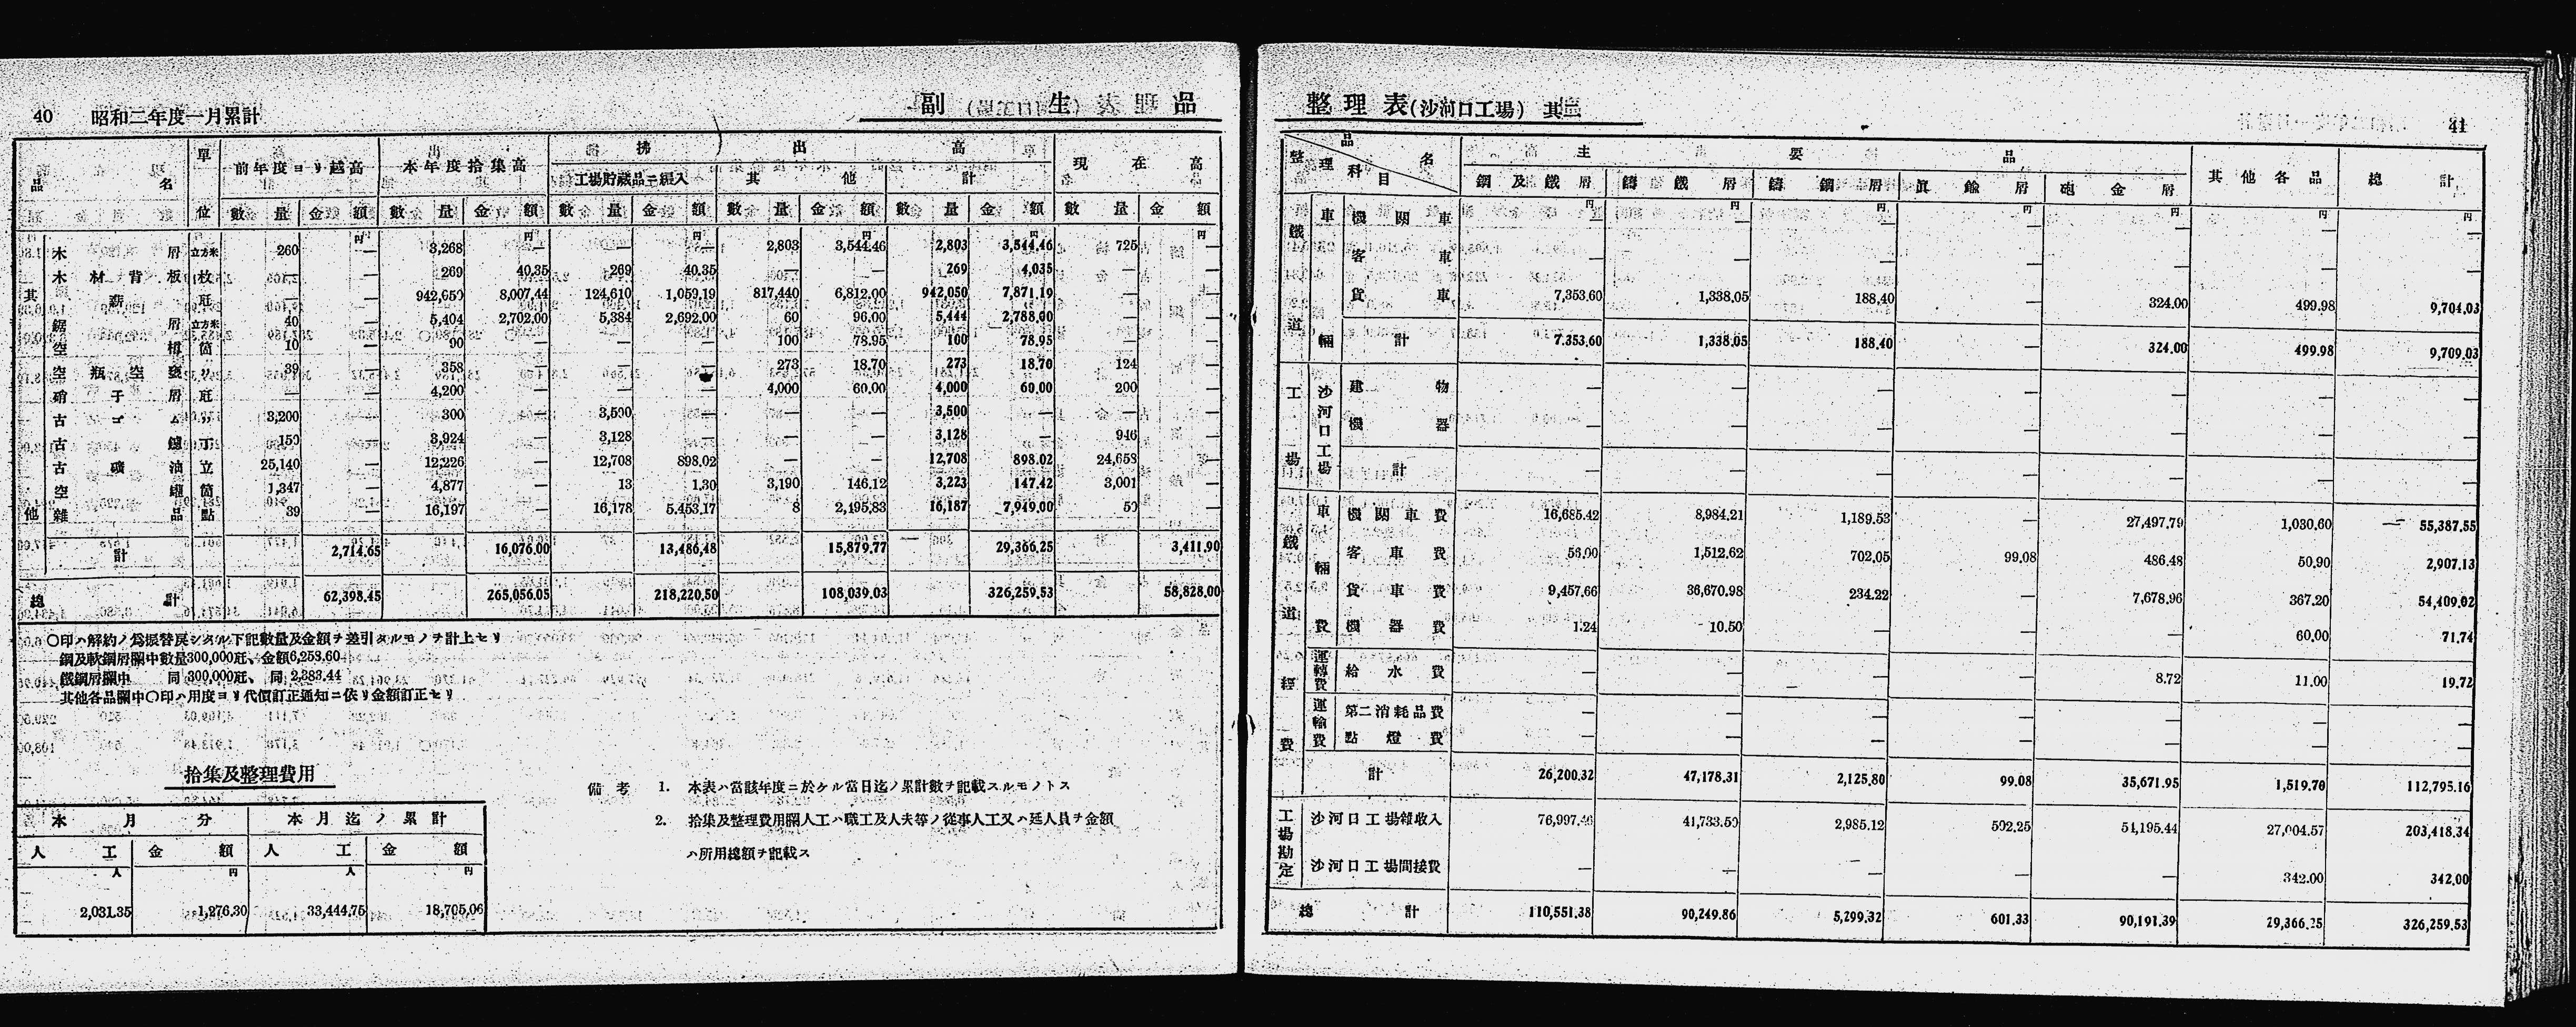 40 昭和二年度一月累計
副生品
品名 單位 前年度ヨリ越高 本年度拾集高 拂出高 現在高
工場貯藏品ニ組入 其他 計
數量 金額 數量 金額 數量 金額 數量 金額 數量 金額 數量 金額
円 円 円 円 円
其他
木屑 立方米 260 — 3,268 — — — 2,803 3,544.46 2,803 3,544.46 725 —
木材背板 枚 — — 269 40.35 269 40.35 — — 269 4,035 — —
薪 瓩 — — 942,650 8,007.44 124,610 1,059.19 817,440 6,812.00 942,050 7,871.19 — —
鋸屑 立方米 40 — 5,404 2,702.00 5,384 2,692.00 60 96.00 5,444 2,788.00 — —
空樽 箇 10 — 90 — — — 100 78.95 100 78.95 — —
空瓶空甕 〃 39 — 358 — — — 273 18.70 273 18.70 124 —
硝子屑 瓩 — — 4,200 — — — 4,000 60.00 4,000 60.00 200 —
古ゴム 〃 3,200 — 300 — 3,500 — — — 3,500 — — —
古鑢 丁 150 — 3,924 — 3,128 — — — 3,128 — 946 —
古礦油 立 25,140 — 12,226 — 12,708 898.02 — — 12,708 898.02 24,658 —
空罐 箇 1,347 — 4,877 — 13 1.30 3,190 146.12 3,223 147.42 3,001 —
雜品 點 39 — 16,197 — 16,178 5,453.17 8 2,495.83 16,187 7,949.00 50 —
計 2,714.65 16,076.00 13,486.48 15,879.77 29,366.25 3,411.90
總計 62,398.45 265,056.05 218,220.50 108,039.03 326,259.53 58,828.00
〇印ハ解約ノ爲振替戻シタル下記數量及金額ヲ差引タルモノヲ計上セリ
鋼及軟鋼屑欄中數量300,000瓩、金額6,253.60
鐵鋼屑欄中 同 300,000瓩、同 2,383.44
其他各品欄中〇印ハ用度ヨリ代價訂正通知ニ依リ金額訂正セリ
拾集及整理費用
本月分 本月迄ノ累計
人工 金額 人工 金額
人 円 人 円
2,031.35 1,276.30 33,444.75 18,705.06
備考 1. 本表ハ當該年度ニ於ケル當日迄ノ累計數ヲ記載スルモノトス
2. 拾集及整理費用欄人工ハ職工及人夫等ノ從事人工又ハ延人員ヲ金額
ハ所用總額ヲ記載ス
整理表(沙河口工場) 其三
41
品名 整理科目 主要品 其他各品 總計
鋼及鐵屑 鑄鐵屑 鑄鋼屑 眞鍮屑 砲金屑
円 円 円 円 円 円 円
鐵道工場
車輛 機關車 — — — — — — —
客車 — — — — — — —
貨車 7,353.60 1,338.05 188.40 — 324.00 499.98 9,704.03
計 7,353.60 1,338.05 188.40 — 324.00 499.98 9,709.03
沙河口工場 建物 — — — — — — —
機器 — — — — — — —
計 — — — — — — —
鐵道經費
車輛費 機關車費 16,685.42 8,984.21 1,189.53 — 27,497.79 1,030.60 55,387.55
客車費 56.00 1,512.62 702.05 99.08 486.48 50.90 2,907.13
貨車費 9,457.66 36,670.98 234.22 — 7,678.96 367.20 54,409.02
機器費 1.24 10.50 — — — 60.00 71.74
運轉費 給水費 — — — — 8.72 11.00 19.72
運輸費 第二消耗品費 — — — — — — —
點燈費 — — — — — — —
計 26,200.32 47,178.31 2,125.80 99.08 35,671.95 1,519.70 112,795.16
工場勘定
沙河口工場雜收入 76,997.46 41,733.50 2,985.12 502.25 54,195.44 27,004.57 203,418.34
沙河口工場間接費 — — — — — 342.00 342.00
總計 110,551.38 90,249.86 5,299.32 601.33 90,191.39 29,366.25 326,259.53